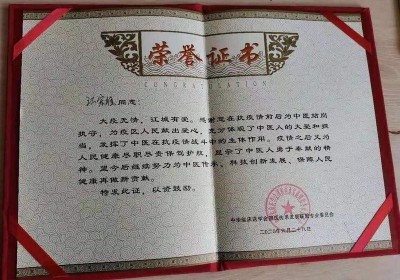 荣誉证书
CONGRATULATION
同志:
大疫无情,江城有爱。感谢您在抗疫情前后为中医站岗
执守,为疫区人民献出爱心,充分体现了中医人的大爱和担
当,发挥了中医在抗疫情战斗中的主体作用。疫情之后又为
人民健康尽职尽责保驾护航,显示了中医人勇于奉献的精
神。望今后继续努力为中医传承,科技创新发展,保障人民
健康再做新贡献。
特发此证,以资鼓励。
二〇二〇年六月二十八日